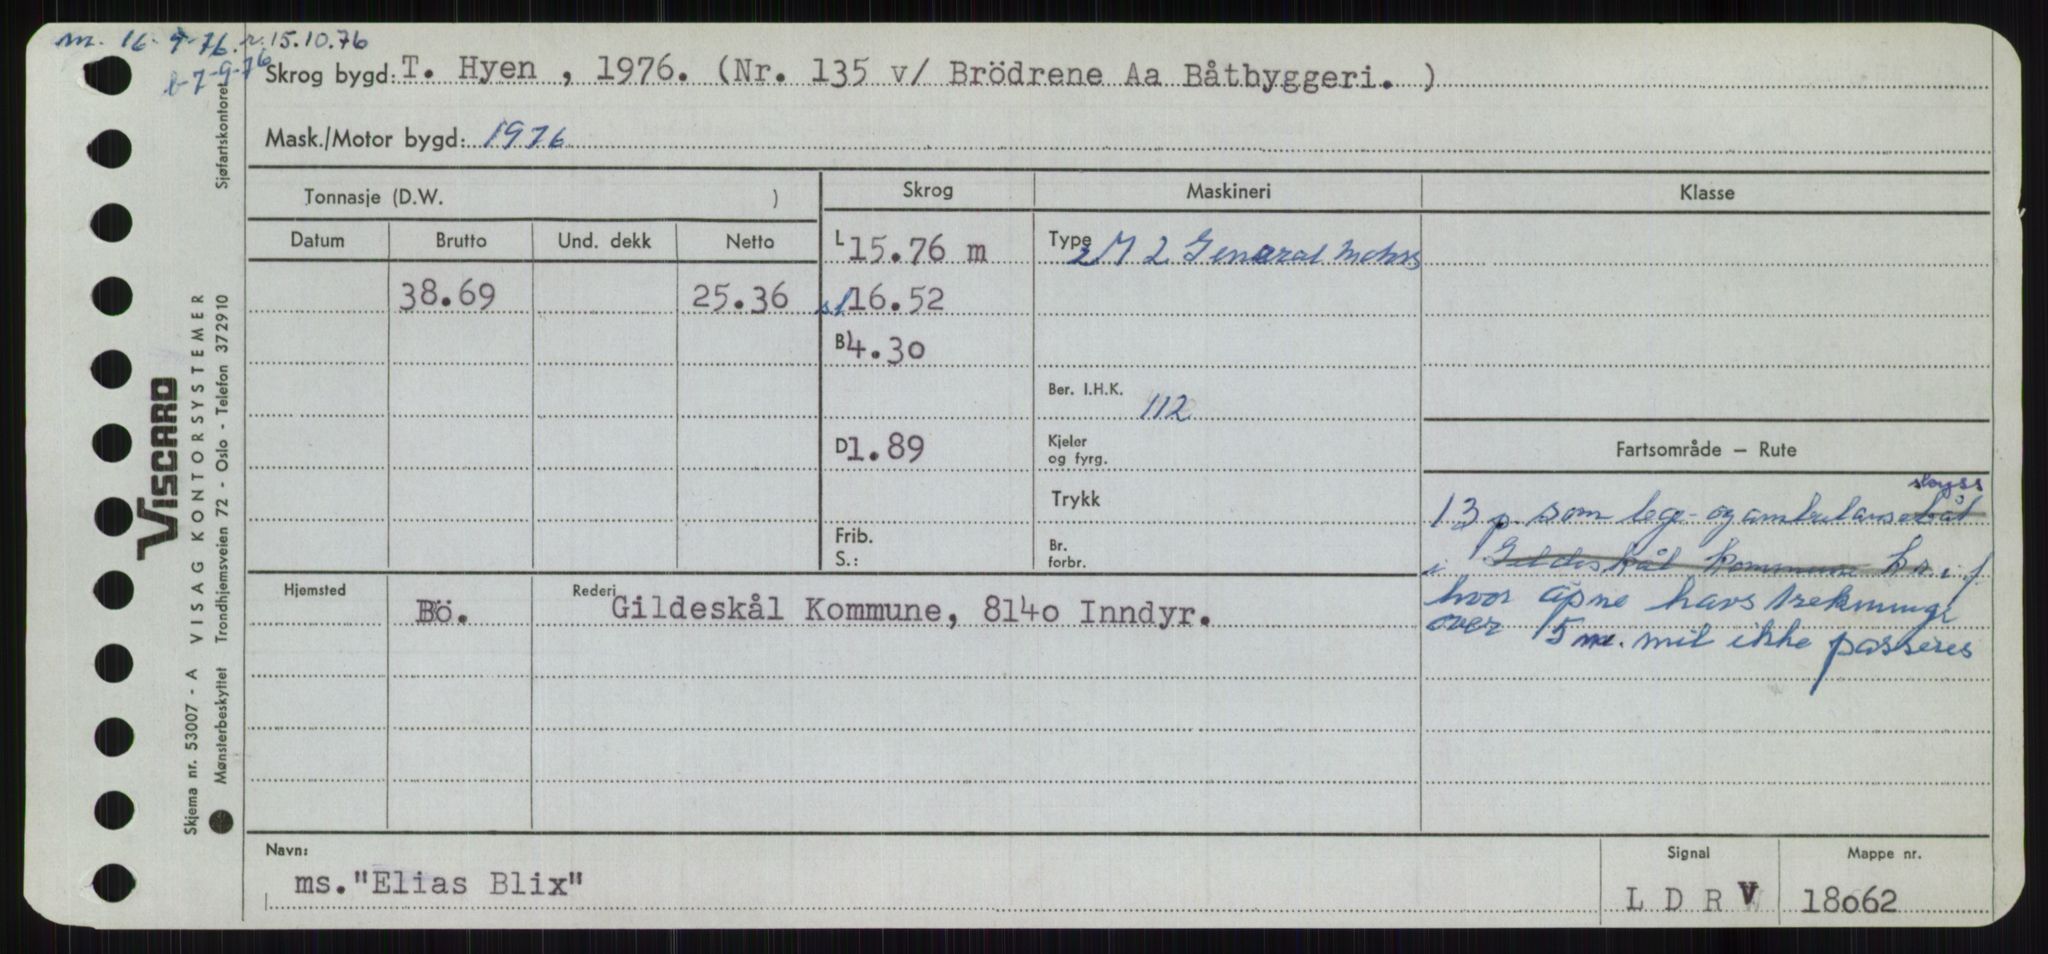 m. 16-9-76. r. 15.10.76
b-7-9-76
Skrog bygd: T. Hyen , 1976. (Nr. 135 v/ Brödrene Aa Båtbyggeri. )
Mask./Motor bygd: 1976
Tonnasje (D.W. )
Skrog
Maskineri
Klasse
Datum
Brutto
Und. dekk
Netto
L 15.76 m
Type 2 M 2 General Motors
38.69
25.36
sl 16.52
B 4.30
Ber. I.H.K. 112
D 1.89
Kjeler
og fyrg.
Fartsområde – Rute
Trykk
skyss
13 p. som lege- og ambulansebåt
Frib.
S.:
Br.
forbr.
i Gildeskål kommune
hvor åpne havstrekninger
over 5 mil ikke passeres
Hjemsted
Bö.
Rederi Gildeskål Kommune, 8140 Inndyr.
Navn:
ms."Elias Blix"
Signal
L D R V
Mappe nr.
18062
VISCARD
VISAG KONTORSYSTEMER
Skjema nr. 53007 - A
Mønsterbeskyttet Trondhjemsveien 72 - Oslo - Telefon 372910 Sjøfartskontoret